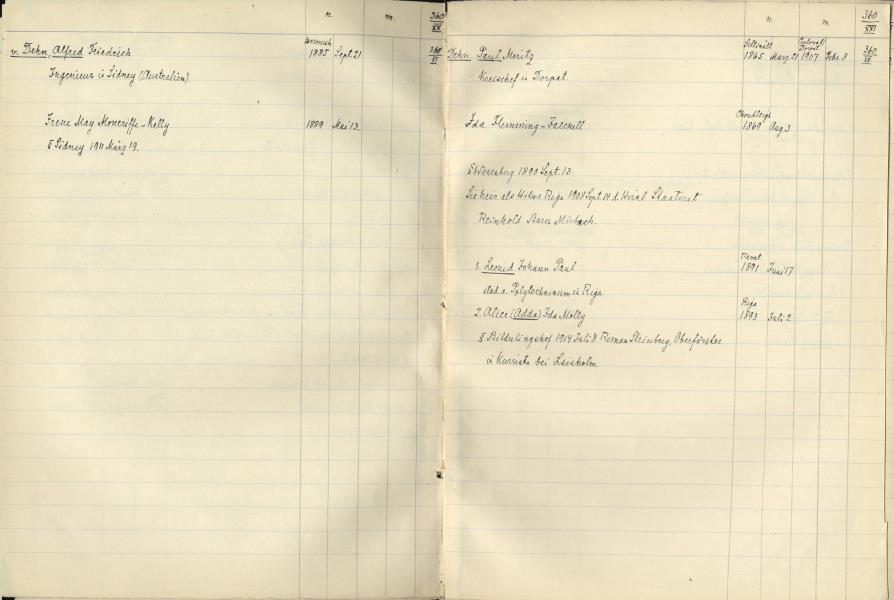 n. m. 360
XX
v. Dehn, Alfred Friedrich Woronesh 1885 Sept. 21 360
VI
Ingenieur in Sidney (Australien).
Irene May Moncriffe-Kelly 1889 Mai 13.
§ Sidney 1911 März 19.
n. m. 360
XXI
Dehn, Paul Moritz Sillimäll 1865 März 21 Dorpat 1907 Febr. 8 360
Kreischef in Dorpat.
Ida Flemming-Falckell 1869 Aug 3.
§ Wesenberg 1890 Sept. 13.
Sie heir. als Witwe Riga 1908 Sept. 14 d. Staatsrat
Reinhold Baron Mirbach.
1. Leonid Johann Paul Reval 1891 Juni 17
stud. a. Polytechnikum in Riga.
2. Alice (Adda) Ida Molly Riga 1893 Juli 2
§ Bilderlingshof 1914 Juli 8 Roman Steinberg, Oberförster
in Kurrista bei Laisholm.